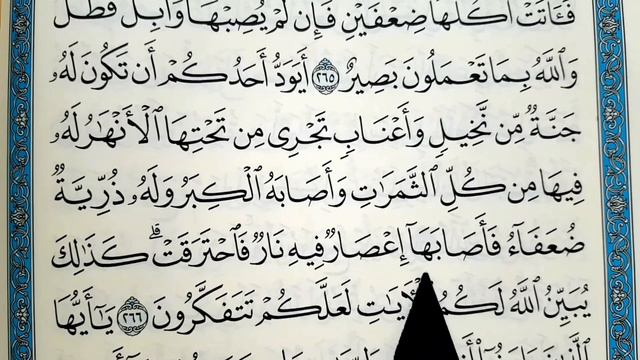 فَـَٔاتَتْ أُكُلَهَا ضِعْفَيْنِ فَإِن لَّمْ يُصِبْهَا وَابِلٌ فَطَلٌّ
وَٱللَّهُ بِمَا تَعْمَلُونَ بَصِيرٌ ٢٦٥ أَيَوَدُّ أَحَدُكُمْ أَن تَكُونَ لَهُۥ
جَنَّةٌ مِّن نَّخِيلٍ وَأَعْنَابٍ تَجْرِى مِن تَحْتِهَا ٱلْأَنْهَٰرُ لَهُۥ
فِيهَا مِن كُلِّ ٱلثَّمَرَٰتِ وَأَصَابَهُ ٱلْكِبَرُ وَلَهُۥ ذُرِّيَّةٌ
ضُعَفَآءُ فَأَصَابَهَآ إِعْصَارٌ فِيهِ نَارٌ فَٱحْتَرَقَتْ ۗ كَذَٰلِكَ
يُبَيِّنُ ٱللَّهُ لَكُمُ ٱلْـَٔايَٰتِ لَعَلَّكُمْ تَتَفَكَّرُونَ ٢٦٦ يَٰٓأَيُّهَا